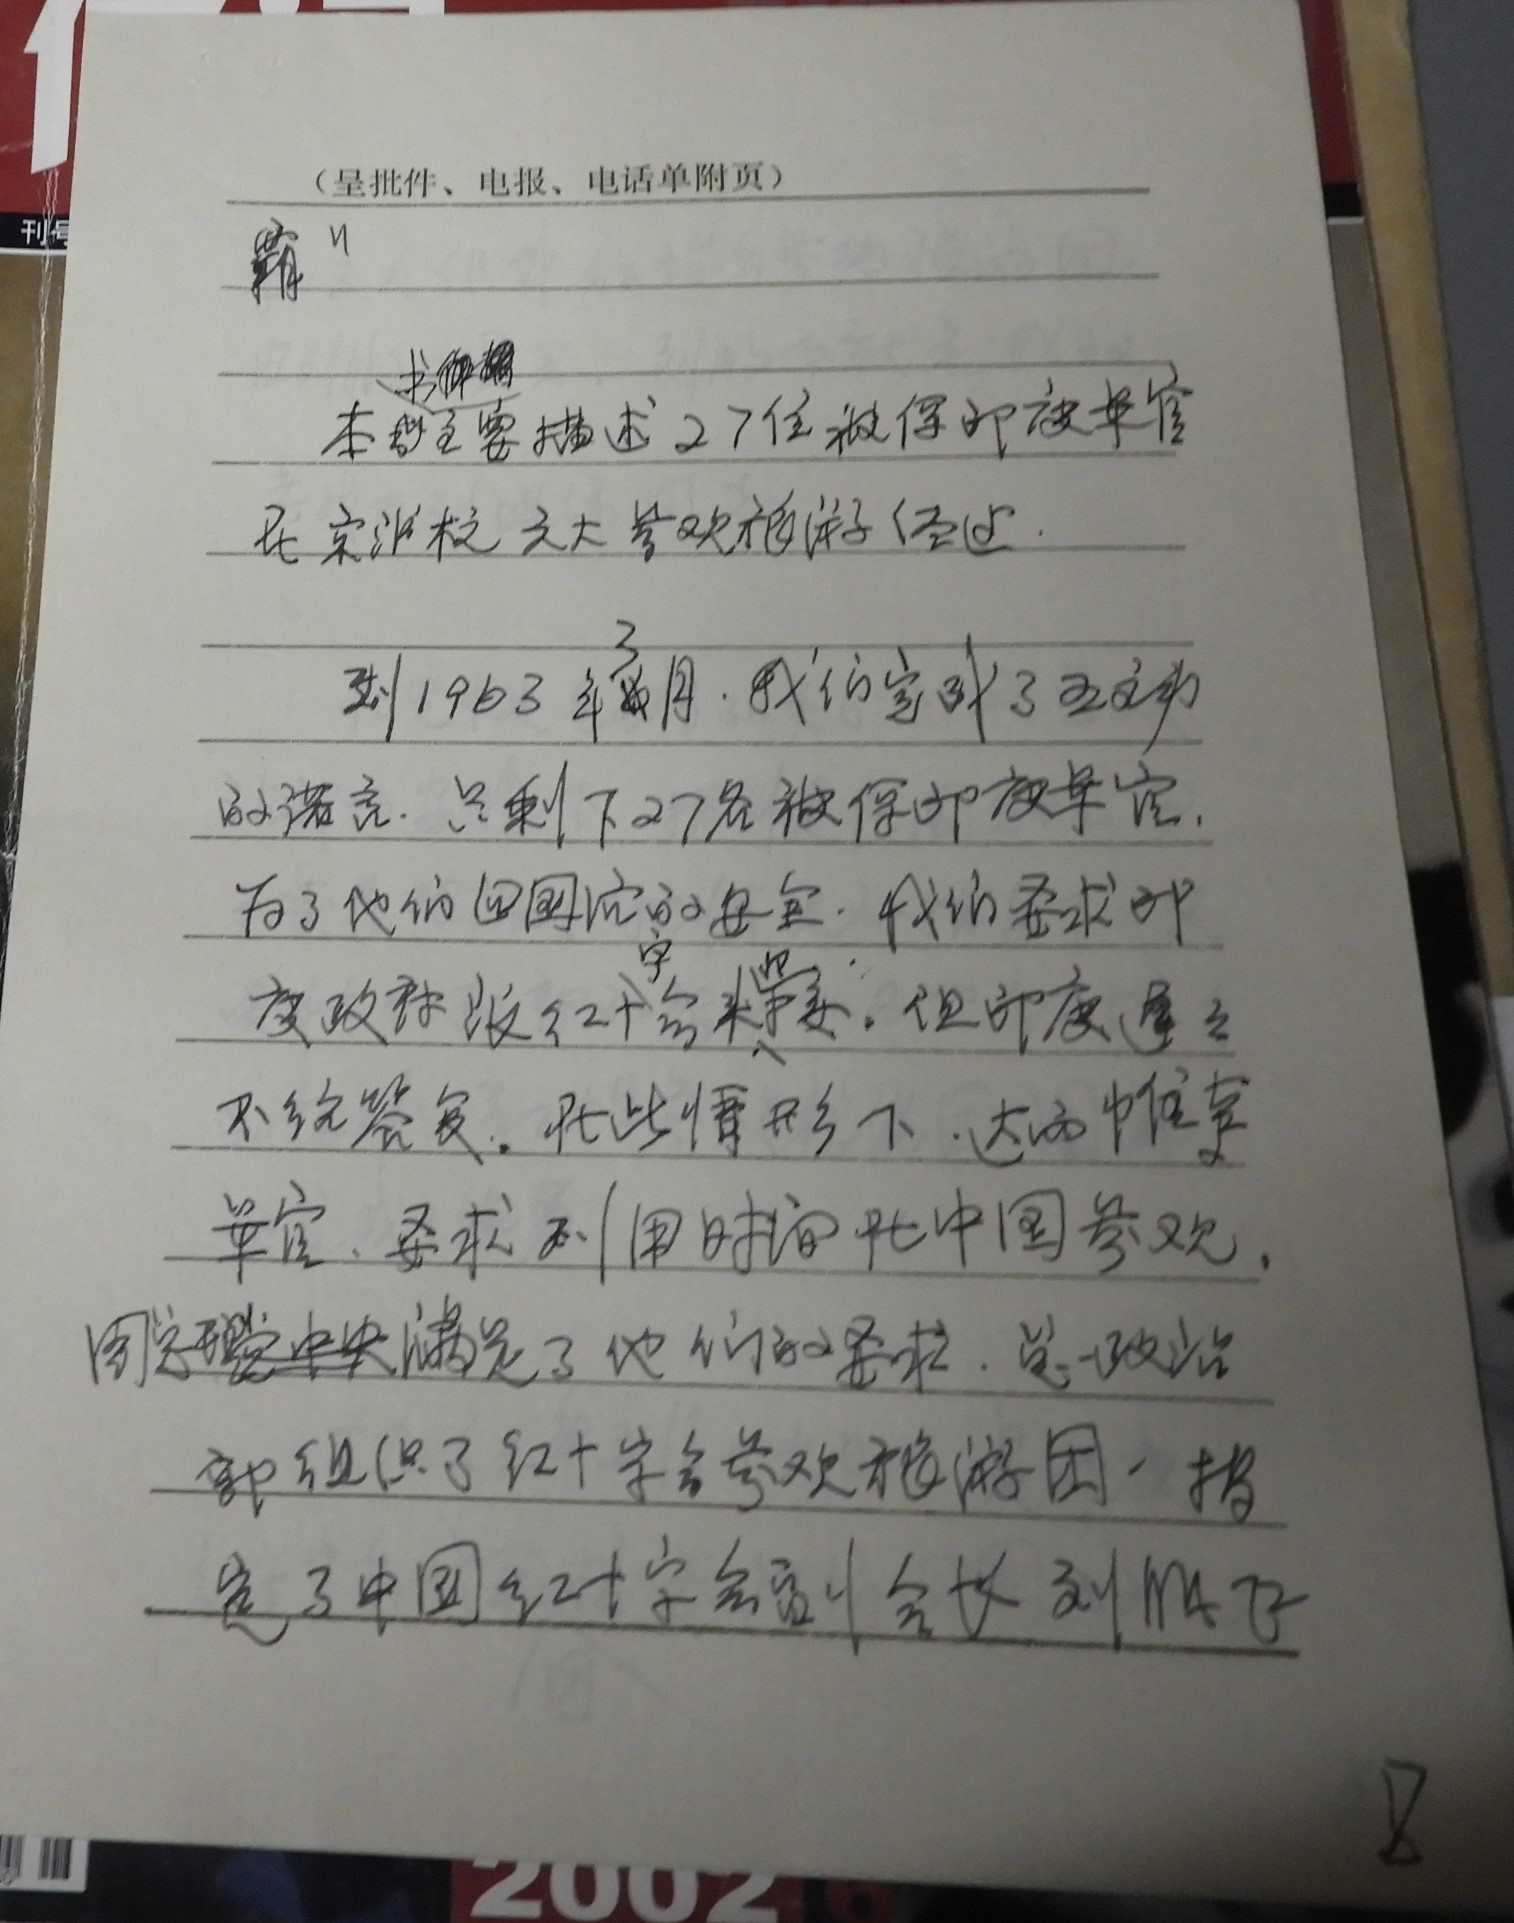 刊号
（呈批件、电报、电话单附页）
霸"
本要描述27位被俘印度军官
在京沪杭 参观旅游经过.
到1963年3月.我们完成了
的诺言.只剩下27名被俘印度军官.
为了他们回国后的安全.我们要求印
度政府派红十字会来.但印度迟迟
不给答复.在此情形下.这些
军官、要求利用时间在中国参观.
周总理满足了他们的要求.总政治
部组织了红十字会参观旅游团.指
定了中国红十字会副会长刘
8
2002